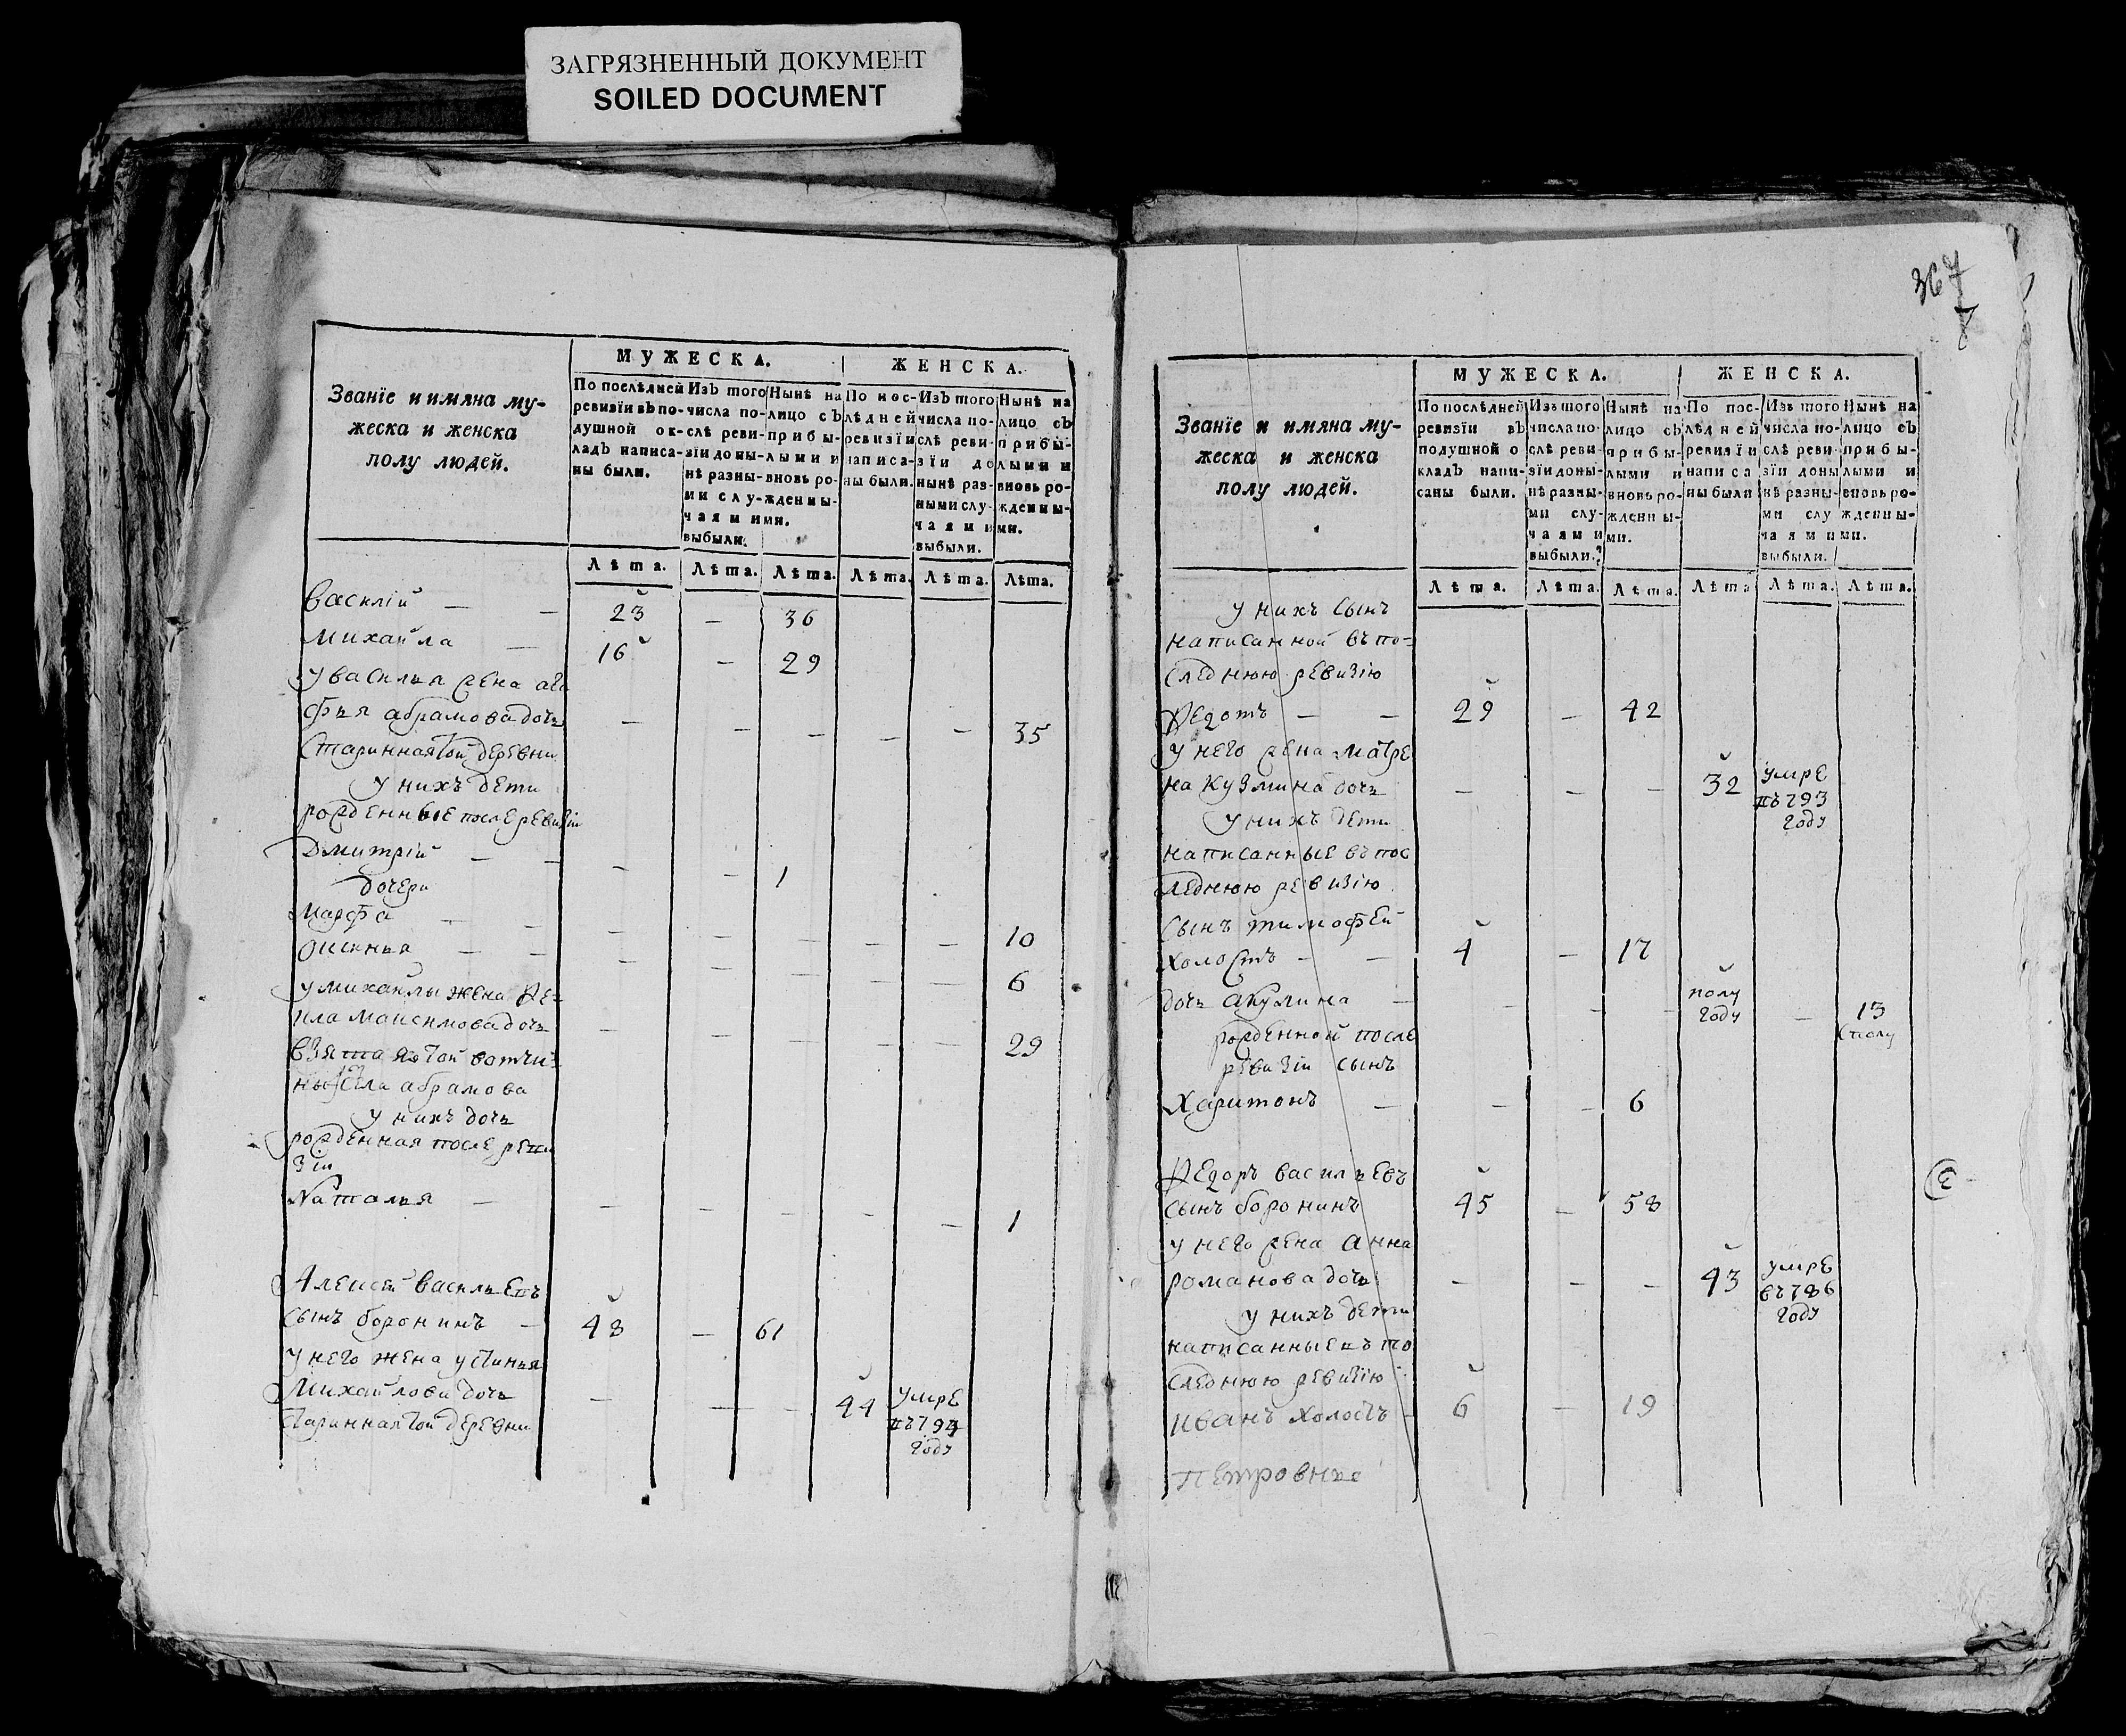 ЗАГРЯЗНЕННЫЙ ДОКУМЕНТ
SOILED DOCUMENT
Званїе и имяна му-
жеска и женска
полу людей.
МУЖЕСКА.
ЖЕНСКА.
По послѣдней ревизїи въ по-душной ок-ладъ написа-ны были.
Изъ того числа по-слѣ реви-зїи до ны-нѣ разны-ми слу-чаями выбыли.
Нынѣ на лицо съ прибы-лыми и вновь ро-жденны-ми.
По пос-лѣдней ревизїи написа-ны были.
Изъ того числа по-слѣ реви-зїи до нынѣ раз-ными слу-чаями выбыли.
Нынѣ на лицо съ прибы-лыми и вновь ро-жденны-ми.
Лѣта. Лѣта. Лѣта. Лѣта. Лѣта. Лѣта.
Василій — — 23 — 36
Михайла — 16 — 29
у василья жена ага
фья абрамова дочь — — — — — 35
Стариннаятой деревни
у нихъ дети
рожденные после ревизіи
Дмитрій — — — — 1
дочери
Марфа — — — — — — — 10
— — — — — — — 6
у михайлы жена Фе-
кла максимова дочь — — — — — 29
взята отчи-
ны абрамова
у нихъ дочь
рожденная после реви
зіи
Наталья — — — — — — 1
Алексей васильевъ
сынъ боронинъ — 48 — 61
у него жена устинья
Михайлова дочь — — — 44 умре
въ 794
году
стариннаятой деревни
367
Званїе и имяна му-
жеска и женска
полу людей.
МУЖЕСКА.
ЖЕНСКА.
По послѣдней ревизїи въ подушной о кладъ напи-саны были.
Изъ того числа по-слѣ реви-зїи до ны-нѣ разны-ми слу-чаями выбыли.
Нынѣ на лицо съ прибы-лыми и вновь ро-жденны-ми.
По пос-лѣдней ревизїи написа ны были
Изъ того числа по-слѣ реви-зїи до ны нѣ разны-ми слу чаями выбыли.
Нынѣ на лицо съ прибы-лыми и вновь ро-жденны-ми.
Лѣта. Лѣта. Лѣта. Лѣта Лѣта. Лѣта.
у нихъ сынъ
написанной въ по-
следнюю ревизію
Федотъ — — 29 — 42
у него жена матре
на кузмина дочь — — — 32 умре
въ 793
году
у нихъ дети
написанные въ пос
леднюю ревизію
сынъ тимофей
холостъ — — 4 — 17
дочь акулина — — — — полу
году — 13
с полу
рожденной после
ревизіи сынъ
Харитонъ — — — 6
Федоръ васильевъ
сынъ боронинъ 45 — 58
у него жена анна
романова дочь — — — 43 умре
въ 786
году
у нихъ дети
написанные въ по
следнюю ревизію
иванъ холостъ — 6 — 19